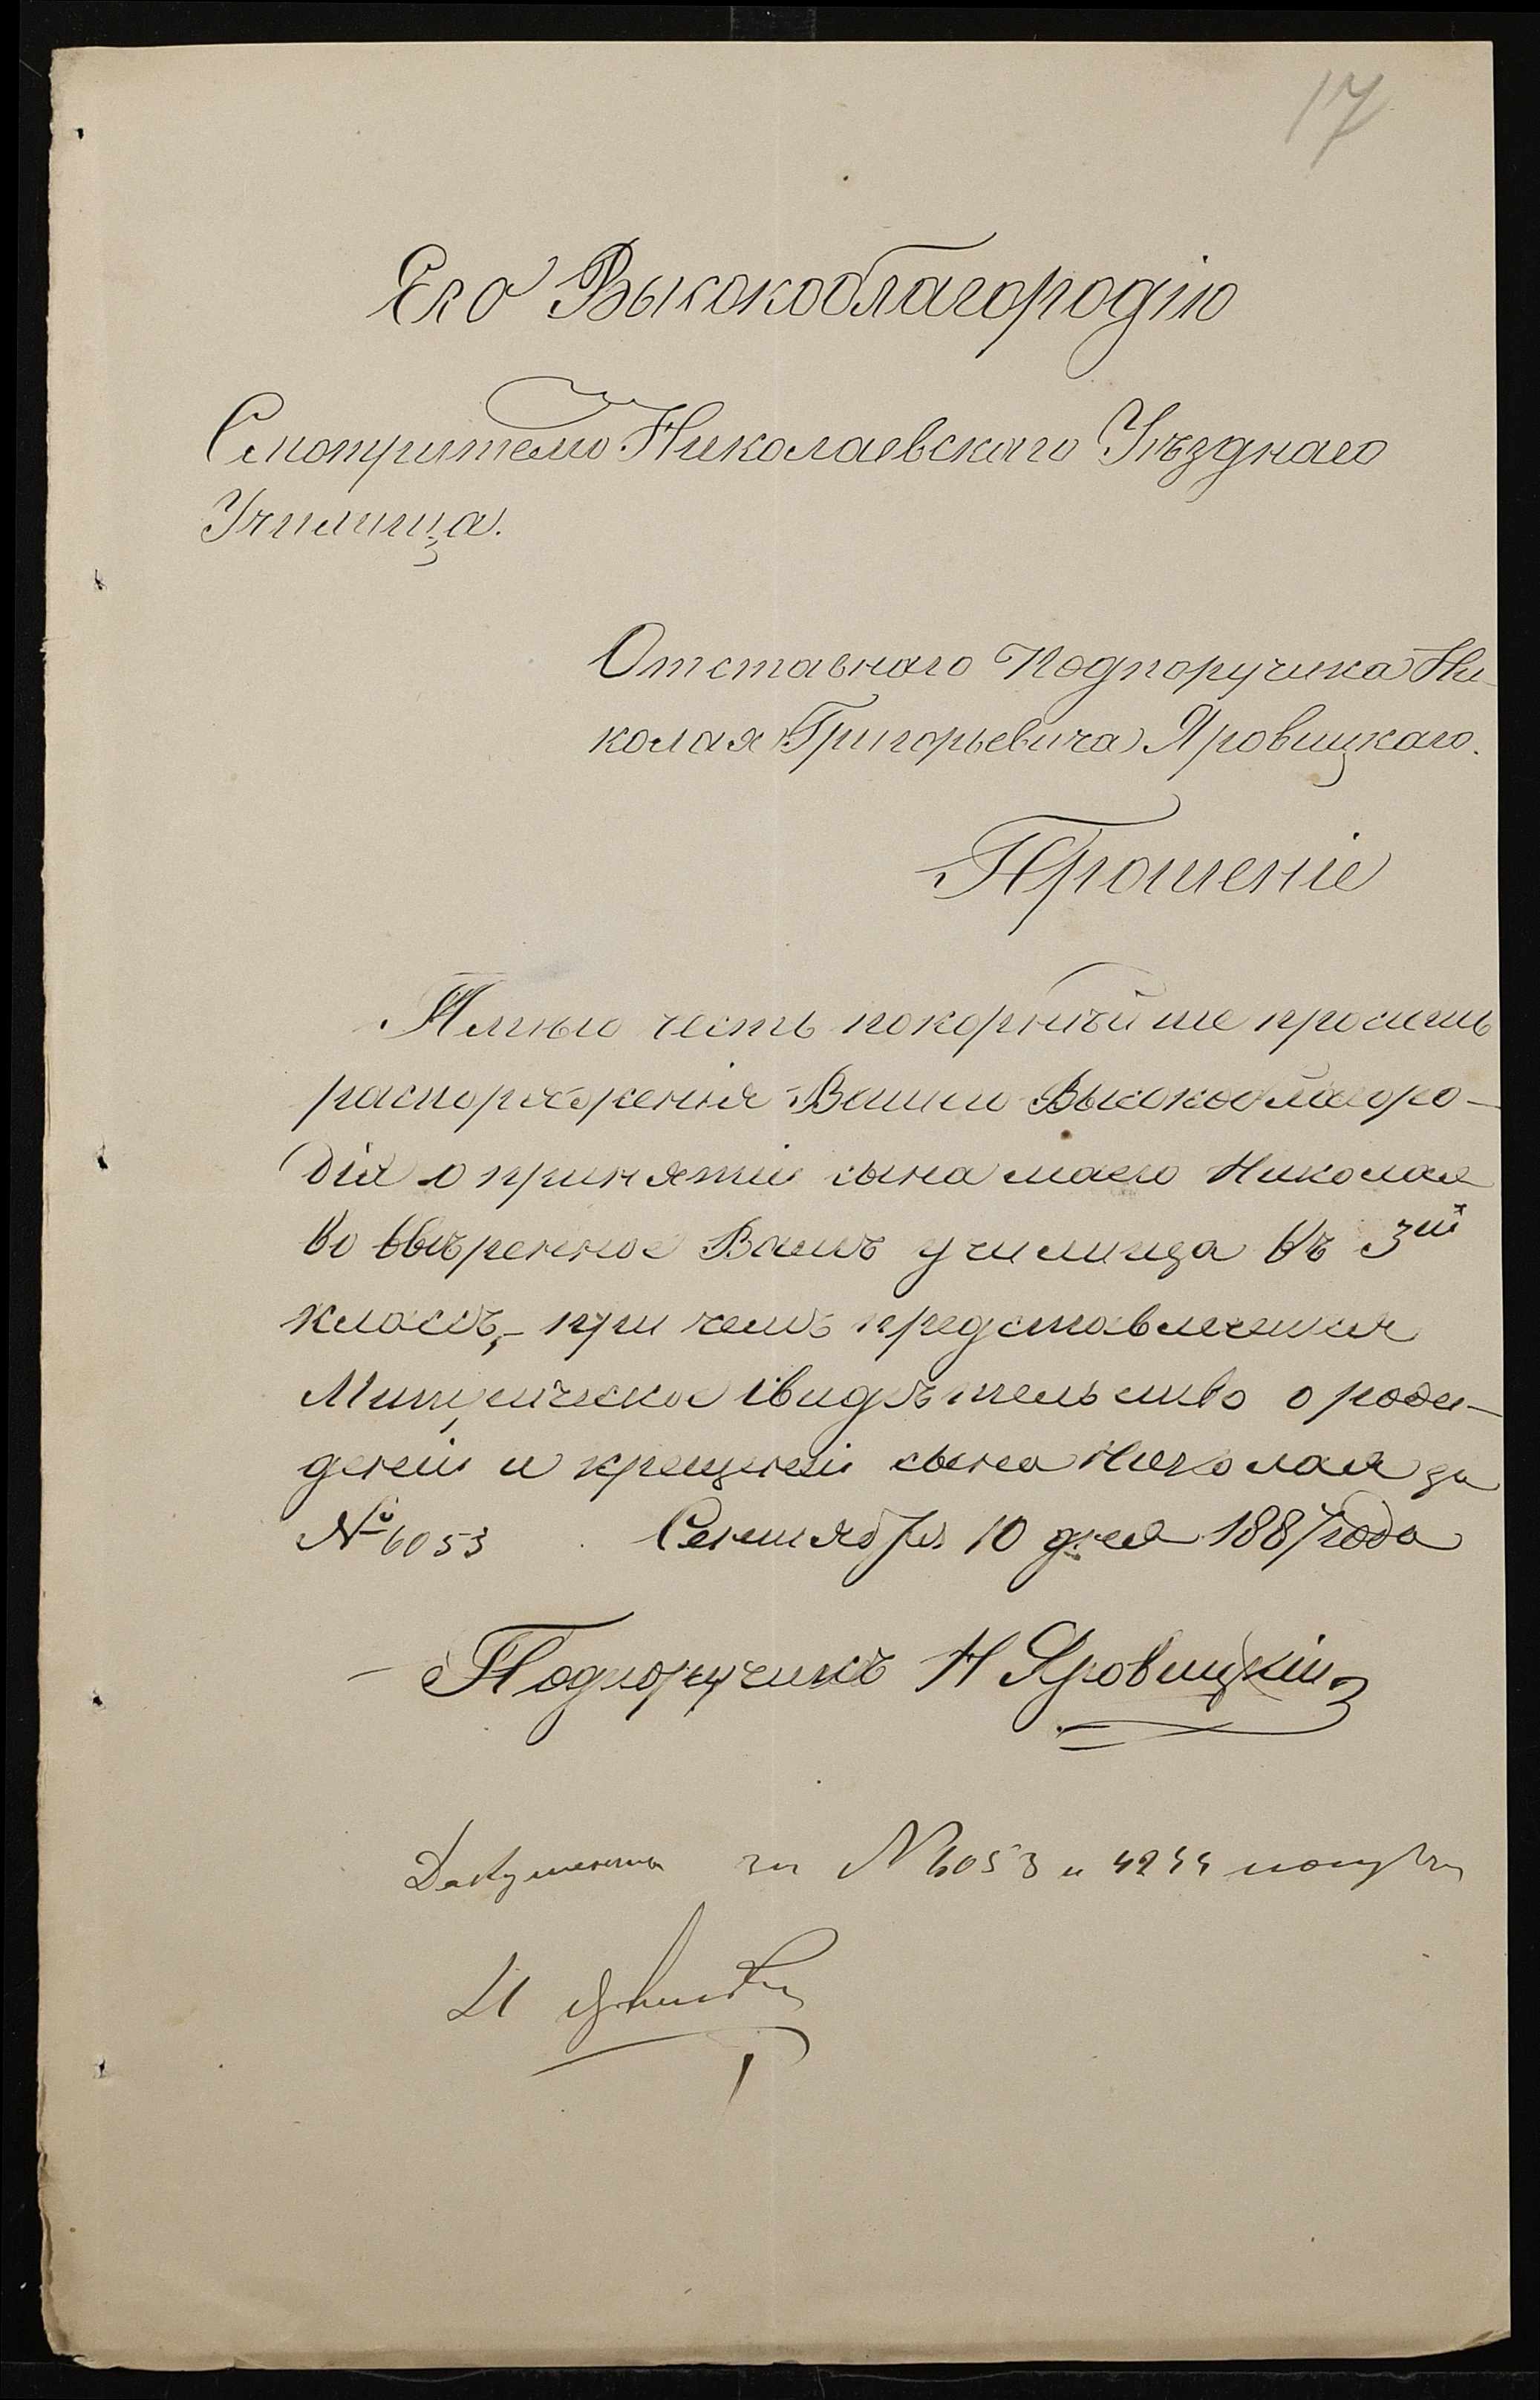 17
Его Высокоблагородію
Смотрителю Николаевскаго Уѣзднаго
Училища.
Отставнаго Подпоручика Ни-
колая Григорьевича Яровицкаго.
Прошеніе
Имѣю честь покорнѣйше просить
распоряженія Вашего Высокоблагоро-
дія о принятіи сына маего Николая
во ввѣренное Вамъ училища въ 3ій
класъ, при чемъ
Митрическое свидѣтельство о рож-
деніи и крещеніи сына Николая за
№ 6053 Сентября 10 дня 1887 года
Подпоручикъ Н Яровицкій
Документы за № 6053 и получ